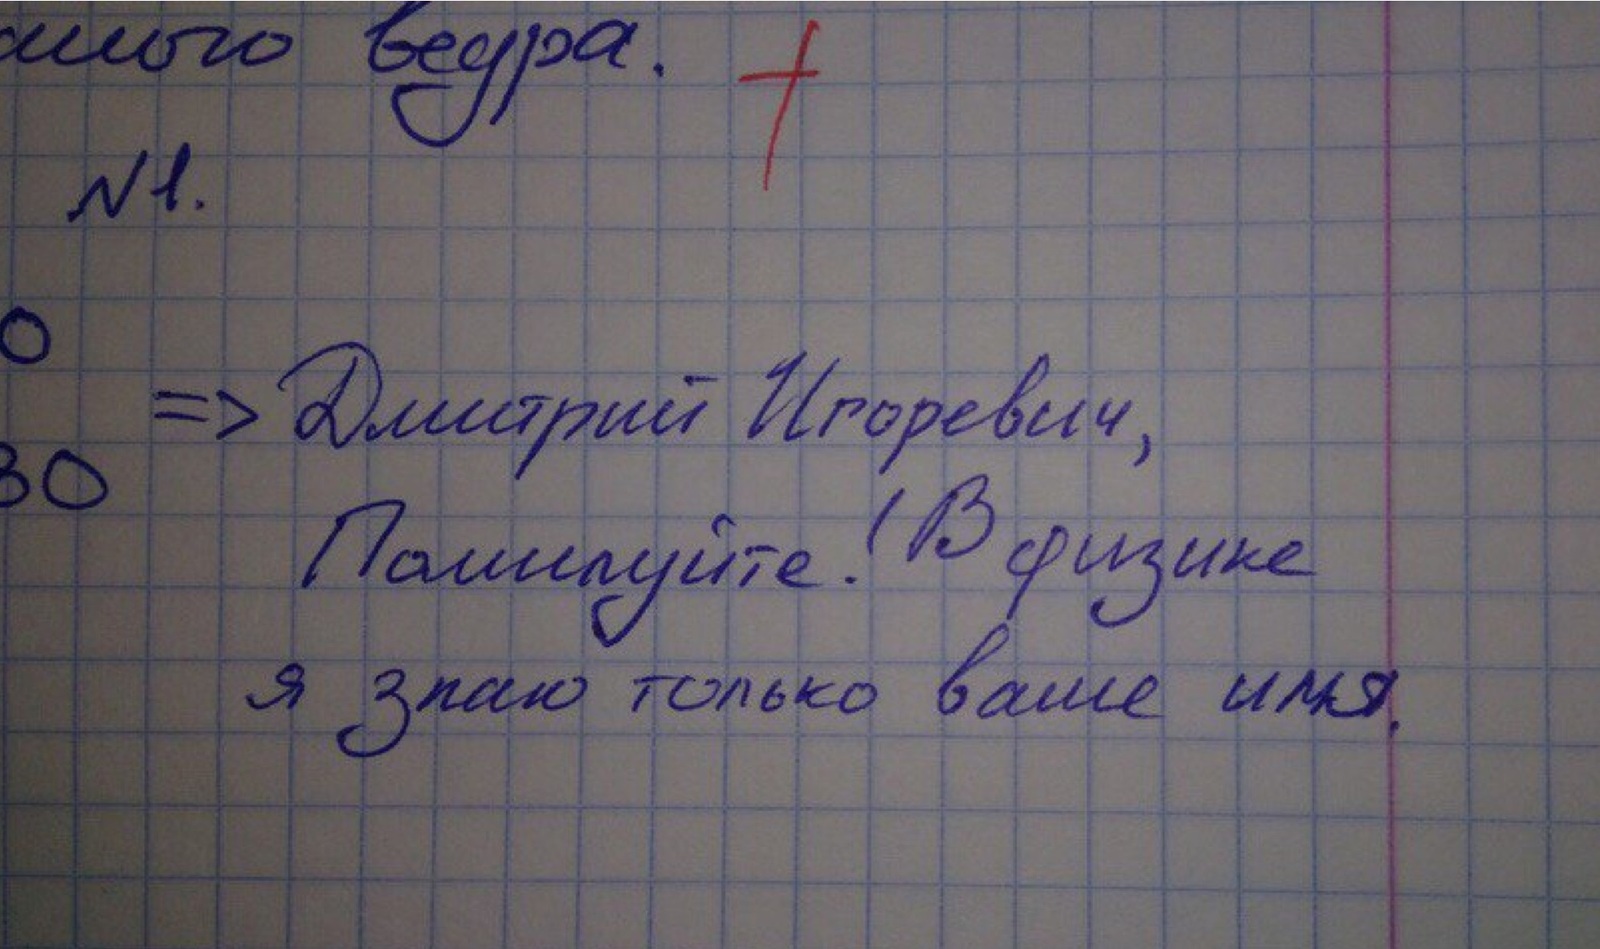 ведра.
N1.
0
=> Дмитрий Игоревич,
30
Помилуйте! В физике
я знаю только ваше имя.